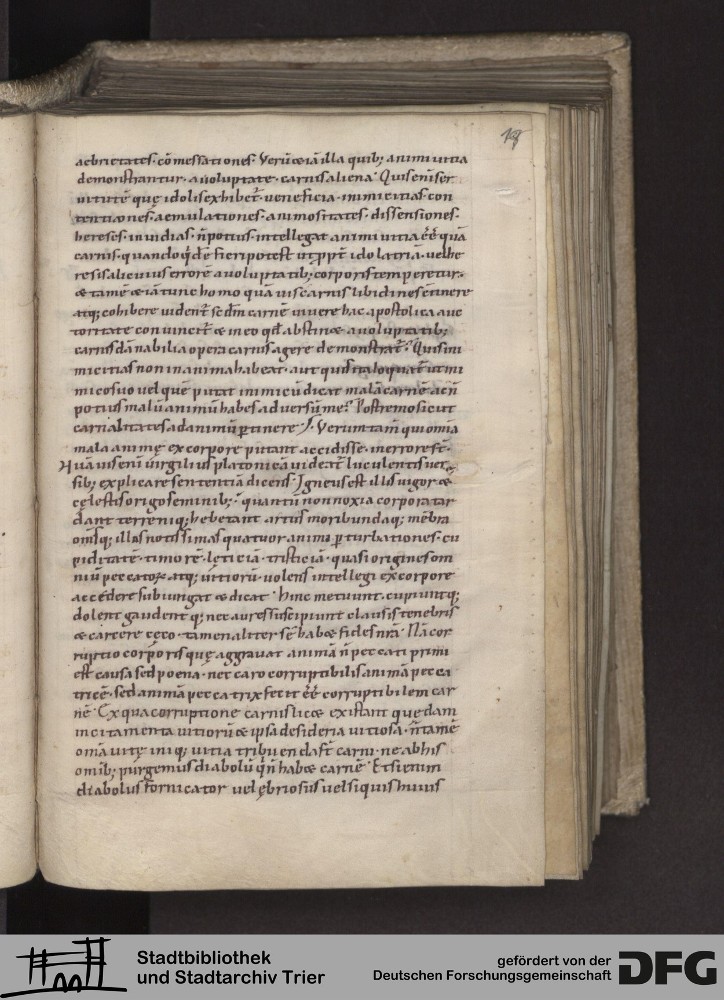 18
aebrietates· cōmessationes· Verū & iā illa quib; animi uitia
demonstrantur· a uoluptate· carnis aliena· Quis enī ser
uitutē quę idolis exhibet̄· ueneficia· inimicitias· con
tentiones· aemulationes· animositates· dissensiones·
hereses· inuidias· n̄ potius intellegat animi uitia ēē quā
carnis· quando q̇dē fieri potest ut ꝓpt̄ idolatriā· uel he
resis alicuius errorē a uoluptatib; corporis temperetur·
& tamē & iā tunc homo quāuis carnis libidines cēnere
atq; cohibere uident̄ scdm̄ carnē uiuere hac apostolica auc
toritate conuincit̄ & in eo qd̄ abstin& a uoluptatib;
carnis dānabilia opera carnis agere demonstrat̄· Quis ini
micitias non in anima habeat· aut quis ita loquat̄ ut ini
mico suo uel quē putat inimicū dicat malā carnē ac n̄
potius malū animū habes aduersū me? Postremo sicut
carnalitates ad animū ꝑtinere· Verumtam̄ qui omīa
mala animę ex corpore putant accidisse· in errore st̄·
Quāuis enī uirgilius platonicā uideat̄ luculentis uer
sib; explicare sententiā dicens· Igneus est illis uigor &
cęlestis origo seminib;· quantū non noxia corpora tar
dant terreniq; hebetant artus moribundaq; mēbra
oms̄q; illas notissimas quatuor animi ꝑturbationes· cu
piditatē· timorē· lętitiā· tristiciā· quasi origines om
niū peccatoꝝ atq; uitiorū· uolens intellegi ex corpore
accedere subiungat & dicat· Hinc metuunt· cupiuntq;
dolent gaudentq; nec auras suscipiunt clausis tenebris
& carcere cęco· tamen aliter se hab& fides nr̄a· Nā cor
ruptio corporis quę aggrauat animā n̄ peccati primi
est causa sed poena· nec caro corruptibilis animā pecca
tricē· sed animā peccatrix fecit ēē corruptibilem car
nē· Ex qua corruptione carnis lic& existant quędam
incitamenta uitiorū & ipsa desideria uitiosa· n̄ tamē
omīa uitę iniq; uitia tribuenda st̄ carni· ne ab his
omīb; purgemus diabolū q̇ n̄ hab& carnē· Etsi enim
diabolus fornicator uel ębriosus uel si quis huius
Stadtbibliothek
und Stadtarchiv Trier
gefördert von der
Deutschen Forschungsgemeinschaft
DFG